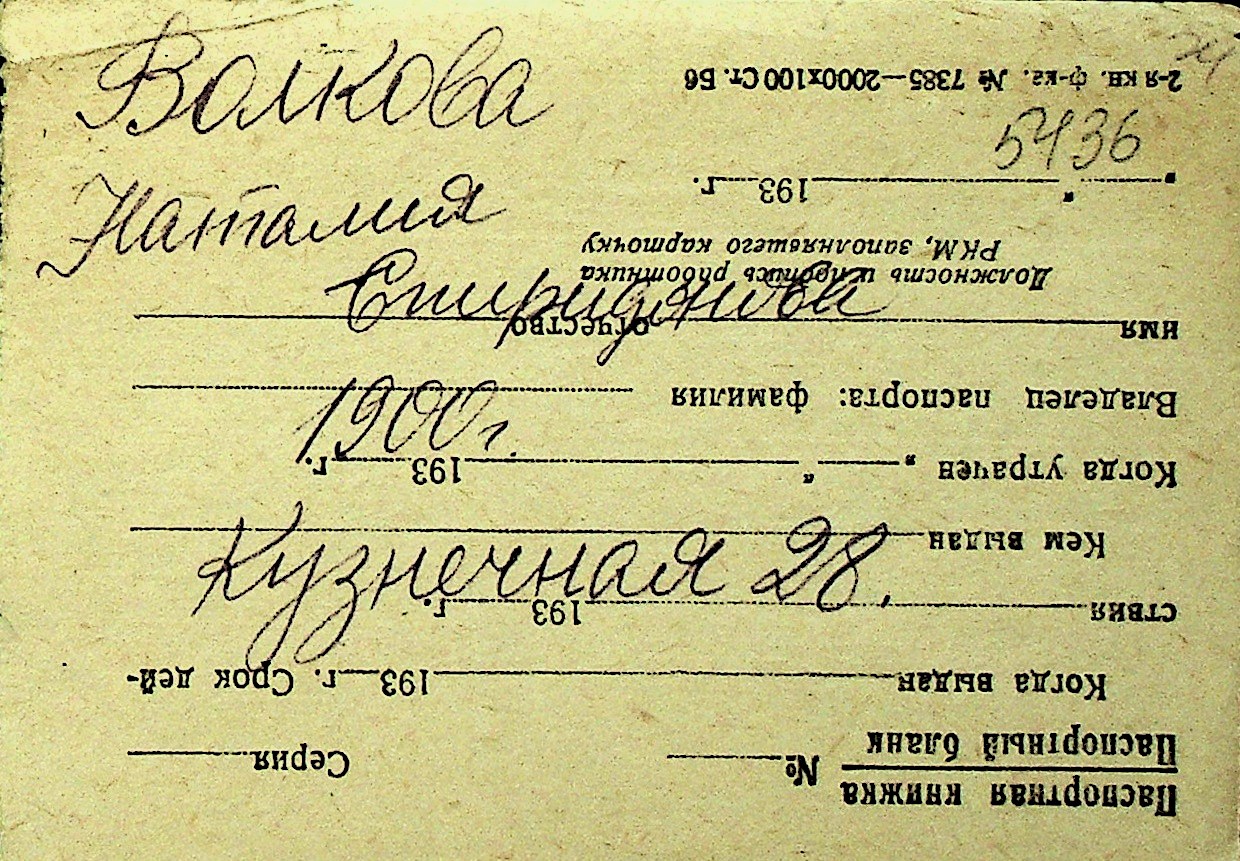 Волкова
Наталия
Спиридонова
1900 г.
Кузнечная 28.
5436
Паспортная книжка
Паспортный бланк № Серия
Когда выдан 193 г. Срок дей-
ствия 193 г.
Кем выдан
Когда утрачен „ " 193 г.
Владелец паспорта: фамилия
имя отчество
Должность и подпись работника
РКМ, заполнявшего карточку
„ " 193 г.
2-я кн. ф-ка. № 7385—2000х100 Ст. Б6